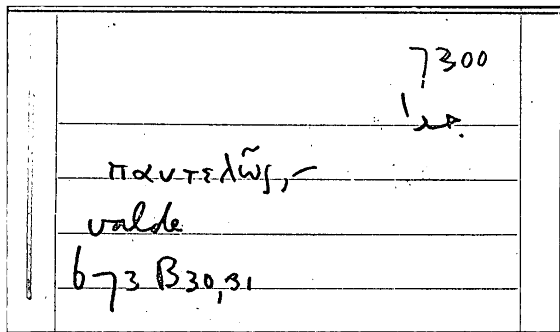 7300
παντελῶς,-
valde
673 B30,31